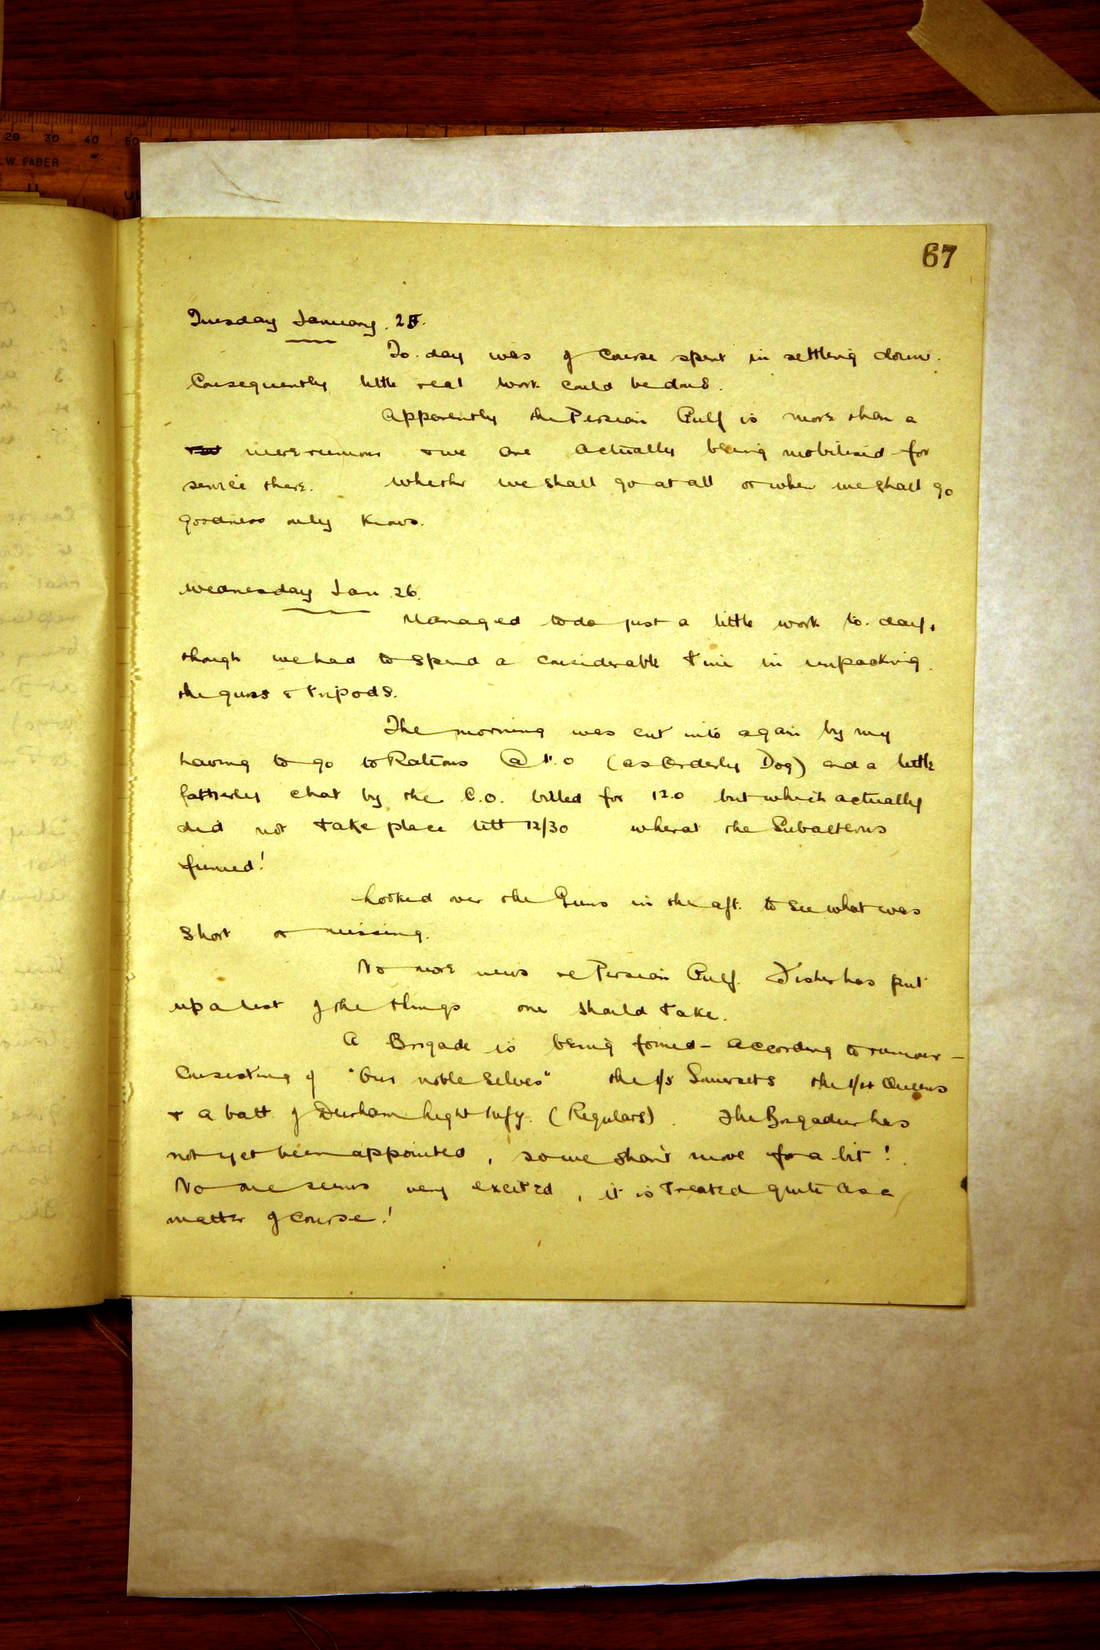 20 30 40 50
W. FABER
67
Tuesday January. 25.
To. day was of course spent in settling down.
Consequently little real work could be done.
Apparently the Persian Gulf is more than a
mere rumour & we are actually being mobilised for
service there. Whether we shall go at all or when we shall go
goodness only knows.
Wednesday Jan 26.
Managed to do just a little work to. day,
though we had to spend a considerable time in unpacking
the guns & tripods.
The morning was cut into again by my
having to go to Rations @ 11.0 (as Orderly Dog) and a little
fatherly chat by the C.O. billed for 12.0 but which actually
did not take place till 12/30 whereat the Subalterns
fumed!
Looked over the Guns in the aft. to see what was
short or missing.
No more news re Persian Gulf. Fisher has put
up a list of the things one should take.
A Brigade is being formed - according to rumour -
Consisting of "Our noble selves" the 1/5 Somersets the 1/4 Queens
& a batt. of Durham Light Infy. (Regulars). The Brigadier has
not yet been appointed, so we shan't move for a bit!
No one seems very excited, it is treated quite as a
matter of course!